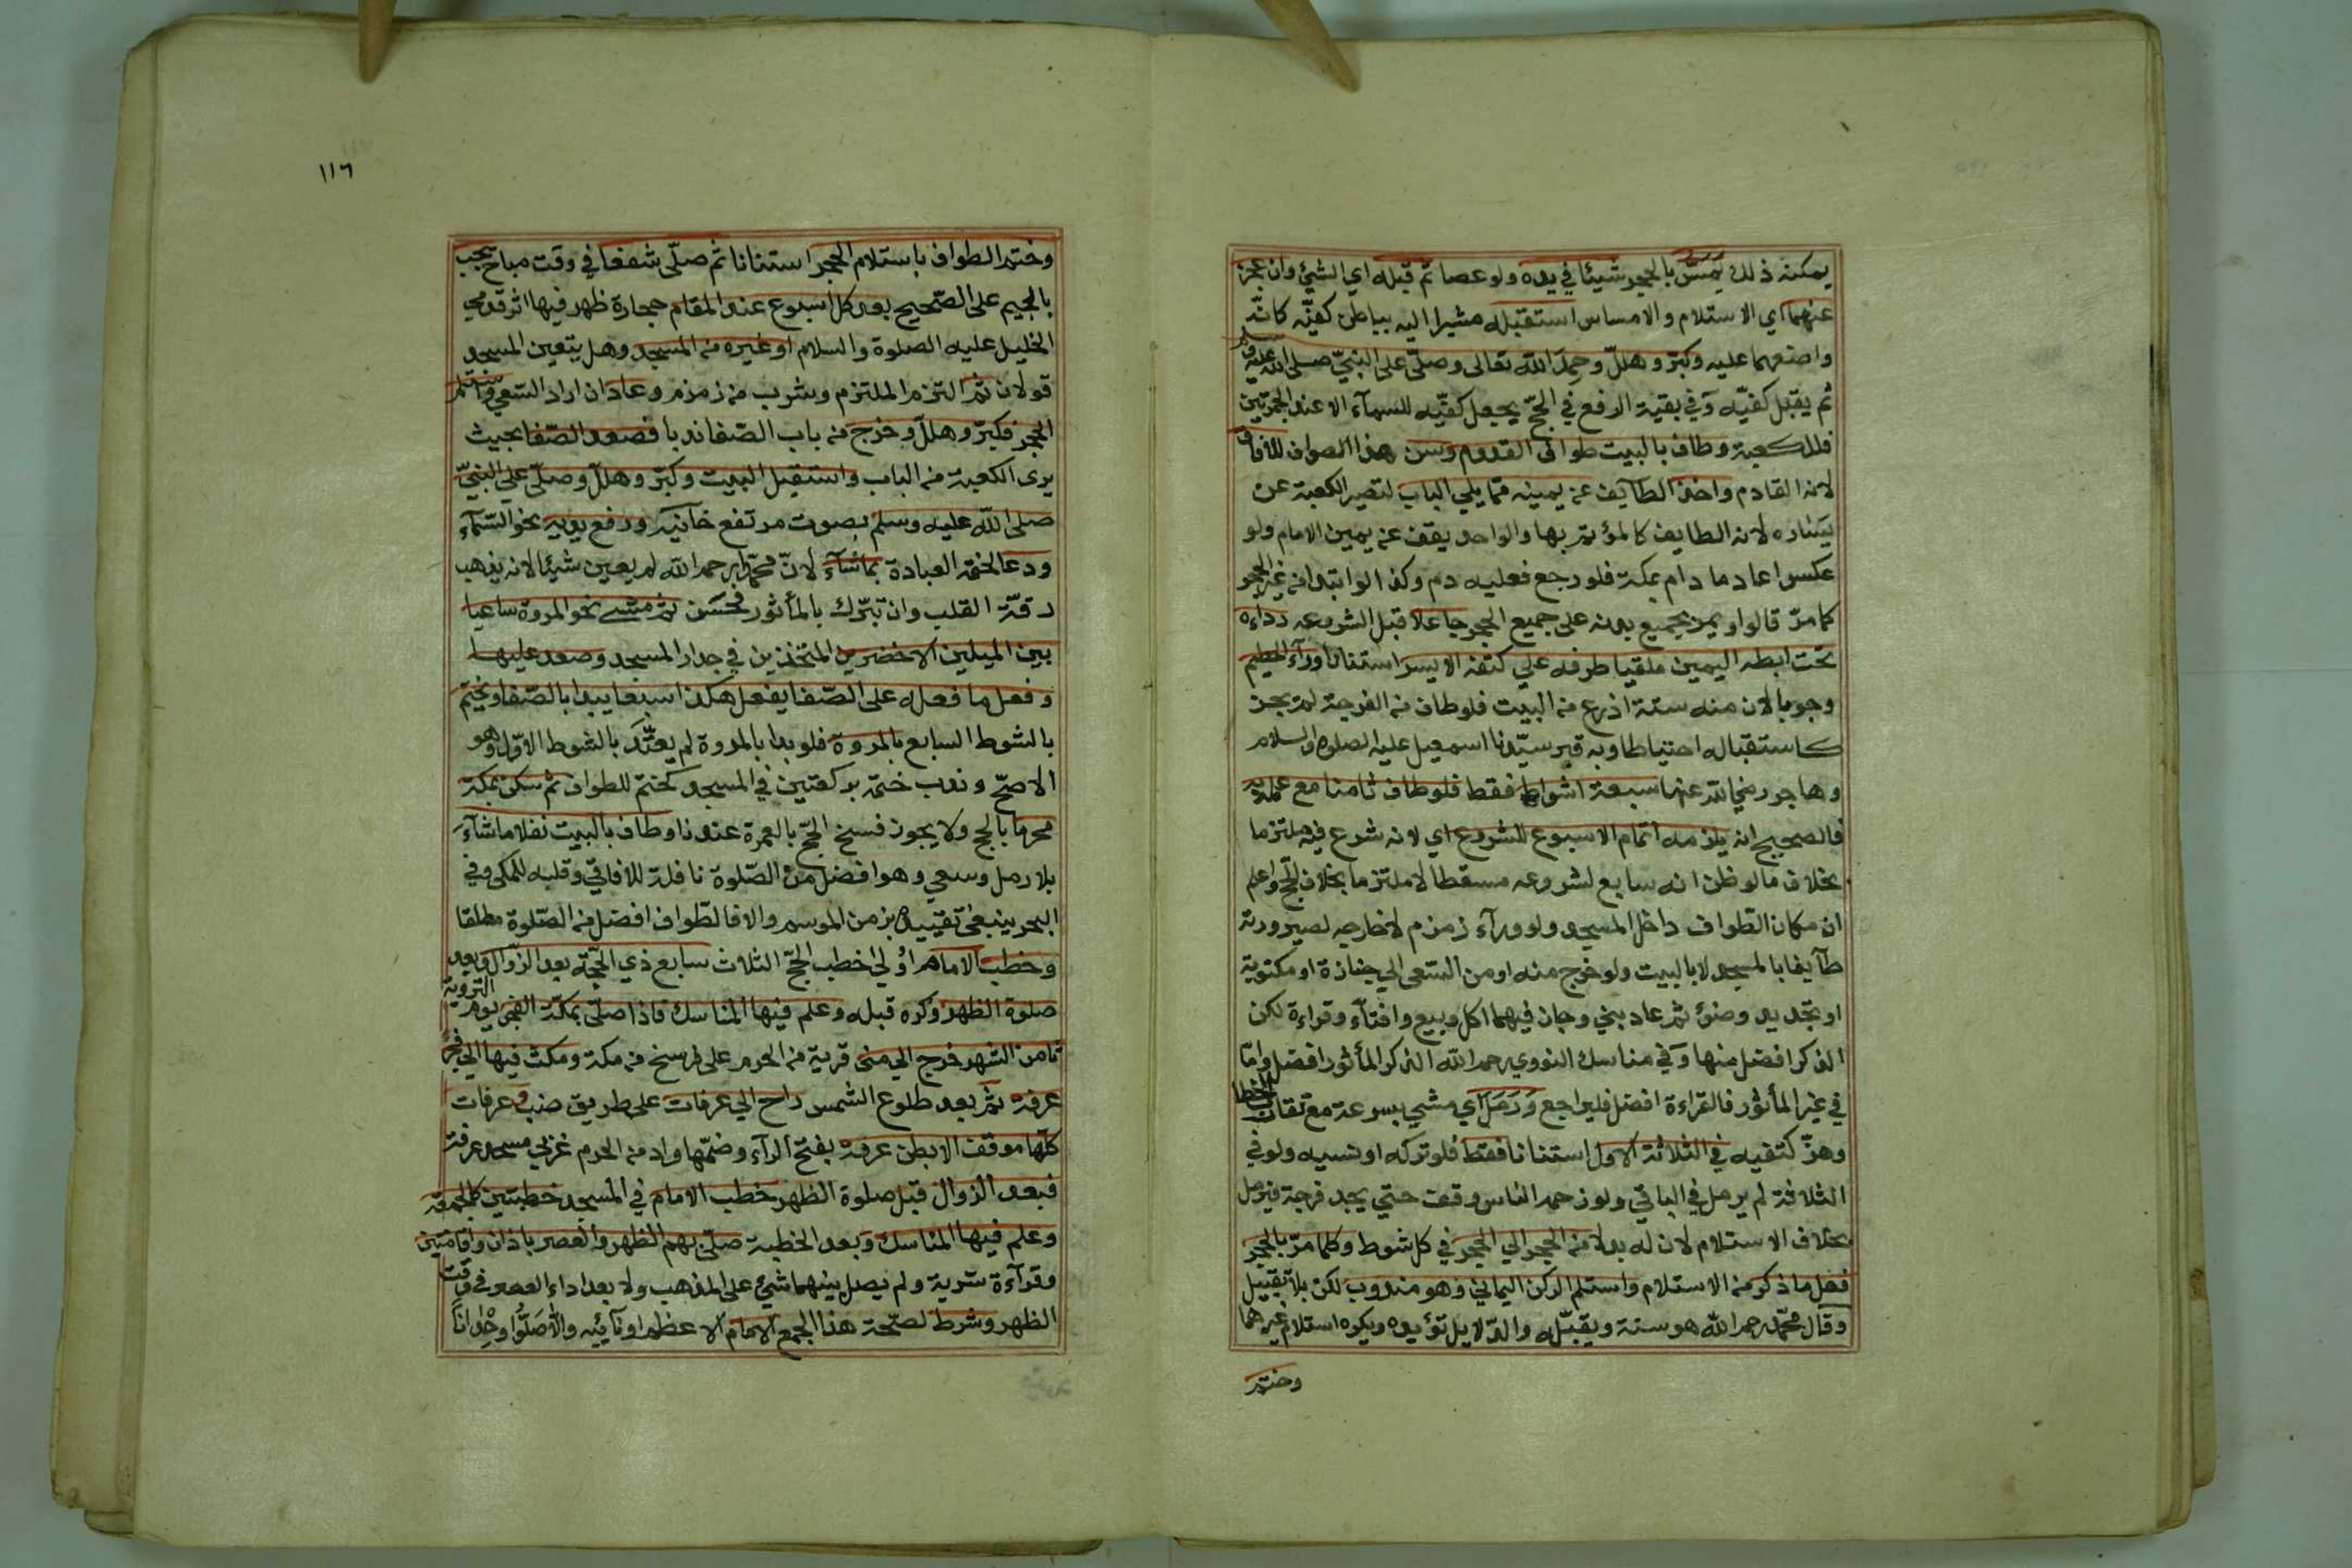 يمكنه ذلك يمسّ بالحجر شيئا في يده ولو عصا ثم قبله اي الشئ وان عجز
عنهما اي الاستلام والامساس استقبله مشيرا اليه بباطن كفيّه كانّه
واضعهما عليه وكبّر وهلّل وحمد الله تعالى وصلّى على النبيّ صلى الله عليه وسلم
ثم يقبل كفيّه وفي بقية الرفع في الحجّ يجعل كفيّه للسمآء الا عند الجمرتين
فللكعبة وطاف بالبيت طواف القدوم وسن هذا الطواف للافاقي
لانه القادم واخذ الطايف عن يمينه ممّا يلي الباب لتصير الكعبة عن
يساره لانه الطايف كالمؤتم بها والواحد يقف عن يمين الامام ولو
عكس اعاد ما دام بمكة فلو رجع فعليه دم وكذا لو ابتدا من غير الحجر
كما مرّ قالوا ويمر بجميع بدنه على جميع الحجر جاعلا قبل الشروعه رداءه
تحت ابطه اليمين ملقيا طرفه على كتفه الايسر استنانا ورآء الحطيم
وجوبا لان منه ستة اذرع من البيت فلو طاف من الفرجة لم يجز
كاستقباله احتياطا وبه قبر سيّدنا اسمعيل عليه الصلوة والسلام
وهاجر رضي الله عنها سبعة اشواط فقط فلو طاف ثامنا مع علمه به
فالصحيح انه يلزمه اتمام الاسبوع للشروع اي لانه شرع فيه ملتزما
بخلاف ما لو ظن انه سابع لشروعه مسقطا لا ملتزما بخلاف الحج واعلم
ان مكان الطواف داخل المسجد ولو ورآء زمزم لا خارجه لصيرورته
طآيفا بالمسجد لا بالبيت ولو خرج منه او من السّعى الى جنازة او مكتوبة
او تجديد وضوٴ ثم عاد بني وجاز فيهما اكل وبيع وافتآء وقراءة لكن
الذكر افضل منها وفي مناسك النووي رحمه الله الذكر المأثور افضل وامّا
في غير المأثور فالقراءة افضل فليراجع ورمل اي مشي بسرعة مع تقارب الخطا
وهزّ كتفيه في الثلاثة الاول استنانا فقط فلو تركه او نسيه ولو في
الثلاثة لم يرمل في الباقي ولو زحمه الناس وقف حتي يجد فرجة فيرمل
بخلاف الاستلام لان له بدلا من الحجر الي الحجر في كل شوط وكلما مرّ بالحجر
فعل ما ذكر من الاستلام واستلم الركن اليماني وهو مندوب لكن بلا تقبيل
وقال محمّد رحمه الله هو سنة ويقبّله والدّلايل تؤيده ويكره استلام غيرهما
وختم
١١٦
وختم الطواف باستلام الحجر استنانا ثم صلّى شفعا في وقت مباح يجب
بالجيم على الصّحيح بعد كل اسبوع عند المقام حجارة ظهر فيها اثر قدمي
الخليل عليه الصلوة والسلام او غيره من المسجد وهل يتعين المسجد
قولان ثم التزم الملتزم وشرب من زمزم وعاد ان اراد السّعي واستلم
الحجر فكبّر وهلّل وخرج من باب الصّفا ندبا فصعد الصّفا بحيث
يرى الكعبة من الباب واستقبل البيت وكبّر وهلّل وصلّى على النبيّ
صلى الله عليه وسلم بصوت مرتفع خانية ورفع يديه نحو السّمآء
ودعا لختمه العبادة بماشآء لانّ محمّدا رحمه الله لم يعين شيئا لانه يذهب
رقّة القلب وان تبرّك بالمأثور فحسن ثم مشى نحو المروة ساعيا
بين الميلين الاخضرين المتخذين في جدار المسجد وصعد عليها
وفعل ما فعله على الصّفا يفعل هكذا سبعا يبدا بالصّفا ويختم
بالشوط السابع بالمروة فلو بدا بالمروة لم يعتّد بالشوط الاوّل وهو
الاصحّ وندب ختمه بركعتين في المسجد كختم للطواف ثم سكن بمكة
محرما بالحج ولا يجوز فسخ الحجّ بالعمرة عندنا وطاف بالبيت نفلا ماشآء
بلا رمل وسعي وهو افضل من الصّلوة نافلة للافاقي وقلبه للمكي وفي
البحر ينبغى تقييده بزمن الموسم والا فالطّواف افضل من الصّلوة مطلقا
وخطب الامام اولي خطب الحجّ الثلاث سابع ذي الحجّة بعد الزّوال وبعد
صلوة الظهر وكره قبله وعلم فيها المناسك فاذا صلّى بمكّة الفجر يوم التروية
ثامن الشهر خرج الي منى قرية من الحرم على فرسخ من مكة ومكث فيها الي فجر
عرفة ثم بعد طلوع الشمس راح الي عرفات على طريق ضب وعرفات
كلّها موقف الا بطن عرفة بفتح الرآء وضمّها واد من الحرم غربي مسجد عرفة
فبعد الزوال قبل صلوة الظهر خطب الامام في المسجد خطبتين كالجمعة
وعلم فيها المناسك وبعد الخطبة صلّى بهم الظهر والعصر باذان واقامتين
وقرآءة سّرية ولم يصل بينهما شئ على المذهب ولا بعد اداء العصر في وقت
الظهر وشرط لصحّة هذا الجمع الامام الاعظم او نآئبه والّا صلّوا وحدانا